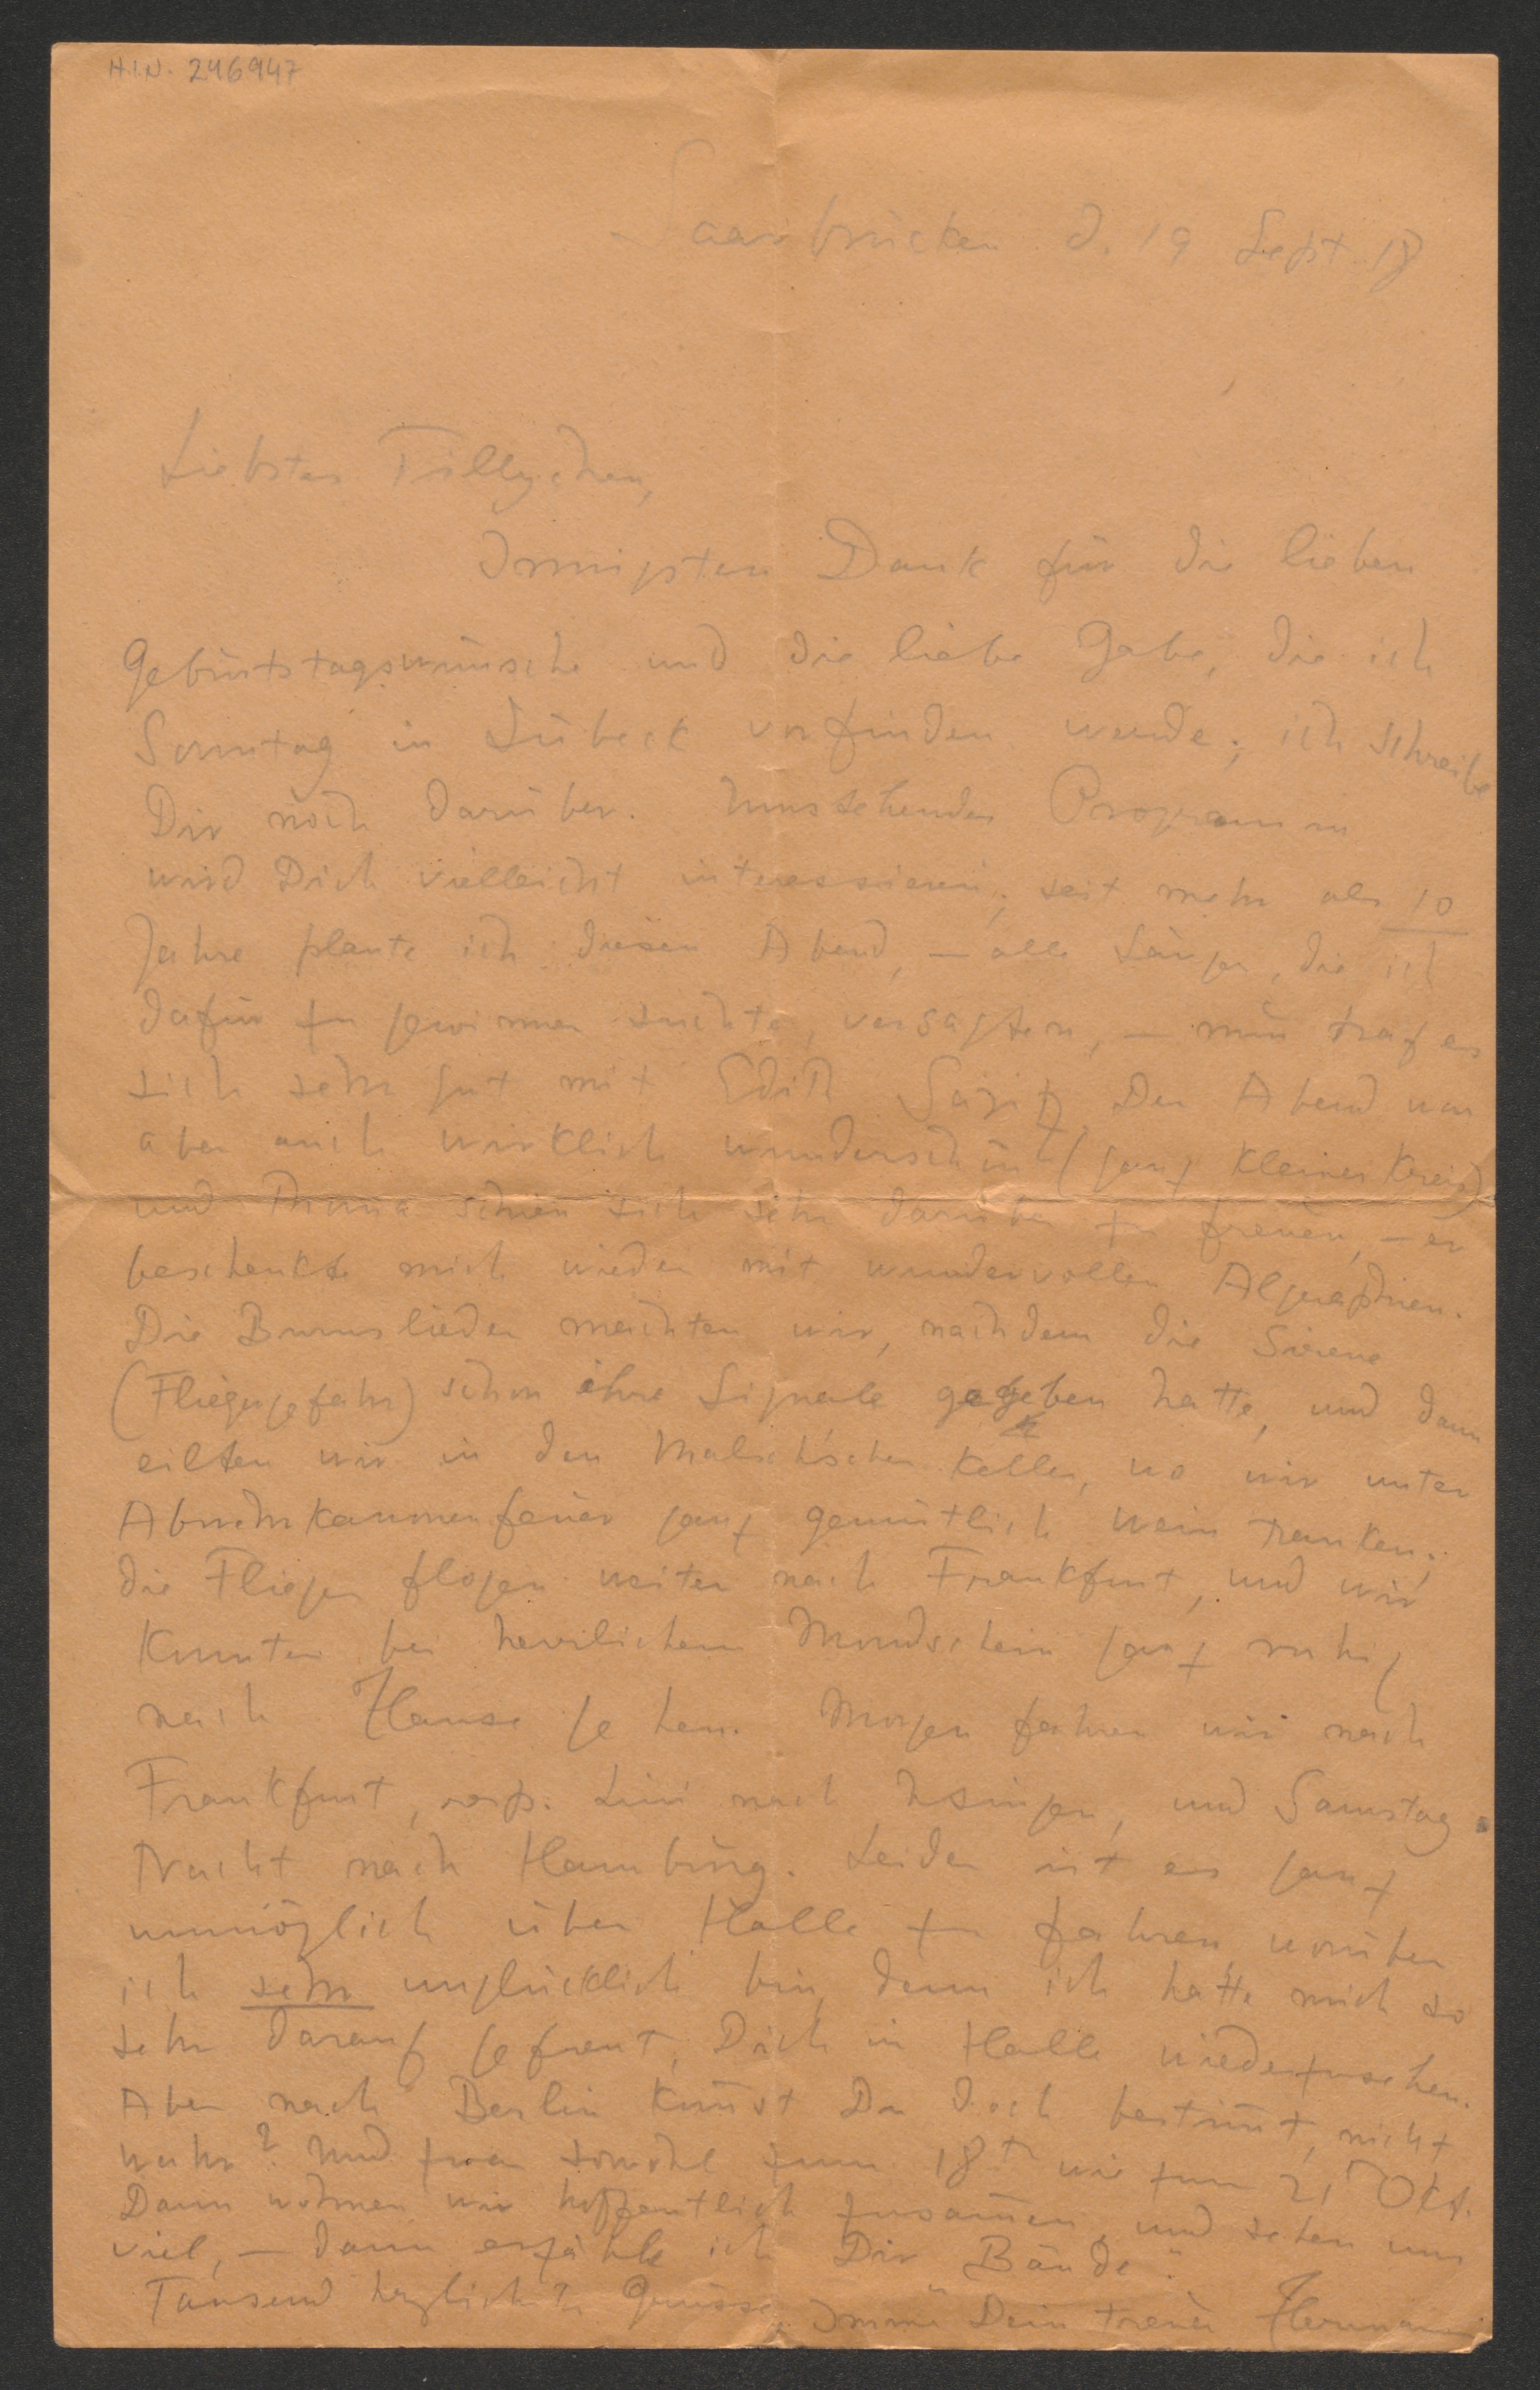 H.I.N. 246947
Saarbrücken d. 19 Sept. 18
Liebstes Tillychen,
Innigsten Dank für die lieben
Geburtstagswünsche und die liebe Gabe, die ich
Sonntag in Lübeck vorfinden werde; ich schreibe
Dir noch darüber. Umstehendes Programm
wird Dich vielleicht interessieren; seit mehr als 10
Jahre plante ich diesen Abend, – alle Sänger, die ich
dafür zu gewinnen suchte, versagten, – nun traf es
sich sehr gut mit Edith Sajitz. Der Abend war
aber auch wirklich wunderschön (ganz kleiner Kreis)
und Thoma schien sich sehr darüber zu freuen, – er
beschenkte mich wieder mit wundervollen Algraphien.
Die Burnslieder machten wir, nachdem die Sirene
(Fliegergefahr) schon ihre Signale gegeben hatte, und dann
eilten wir in den Malsch'schen Keller, wo wir unter
Abwehrkanonenfeuer ganz gemütlich Wein tranken;
die Flieger flogen weiter nach Frankfurt, und wir
konnten bei herrlichem Mondschein ganz ruhig
nach Hause gehen. Morgen fahren wir nach
Frankfurt, resp. Lini nach Usingen, und Samstag
Nacht nach Hamburg. Leider ist es ganz
unmöglich über Halle zu fahren, worüber
ich sehr unglücklich bin, denn ich hatte mich so
sehr darauf gefreut, Dich in Halle wiederzusehen.
Aber nach Berlin kom̅st Du doch bestim̅t, nicht
wahr? Und zwar sowohl zum 18t wie zum 21t Okt.
Dann wohnen wir hoffentlich zusam̅en, und sehen uns
viel, – dann erzähle ich Dir Bände.
Tausend herzlichste Grüsse Immer Dein treuer Hermann